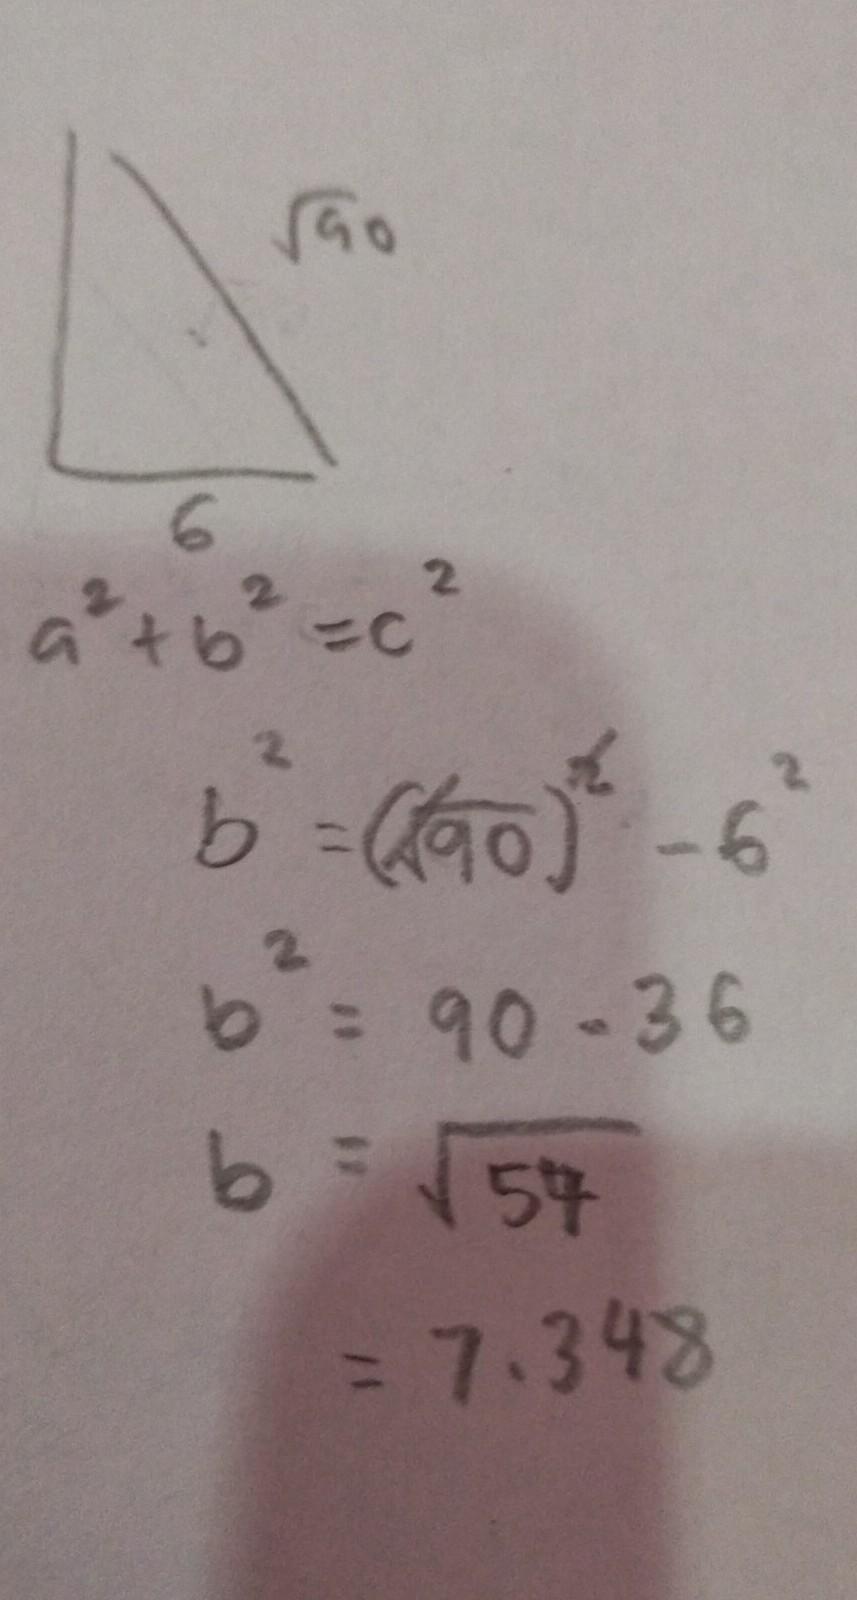 √90
6
a² + b² = c²
b² = (√90)² - 6²
b² = 90 - 36
b = √54
= 7.348